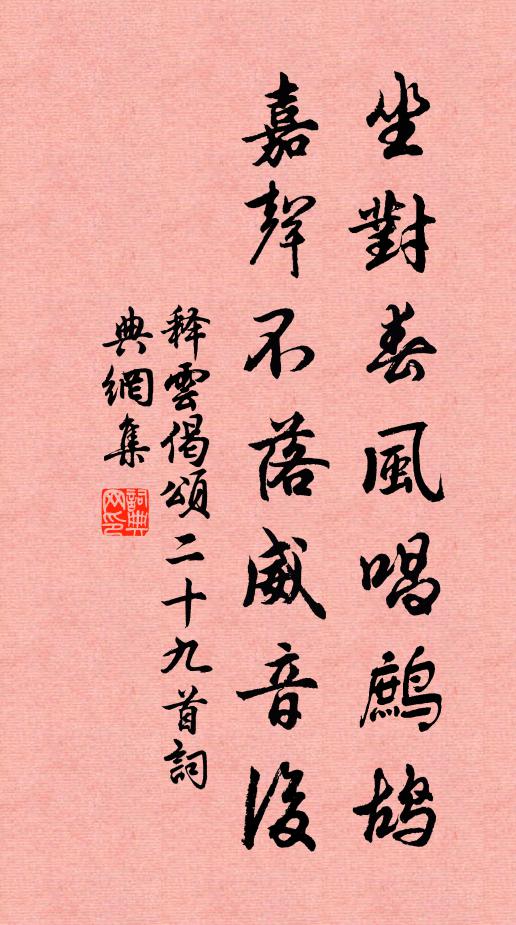 坐對春風唱鷓鴣
嘉聲不落威音後
釋雲偈頌二十九首詞
典網集
詞典網印